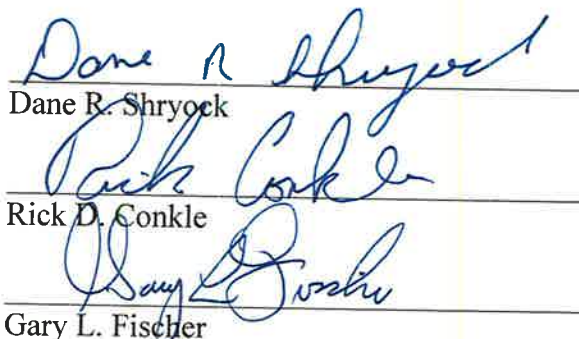 Dane R Shryock
Dane R. Shryock
Rick Conkle
Rick D. Conkle
Gary L Fischer
Gary L. Fischer